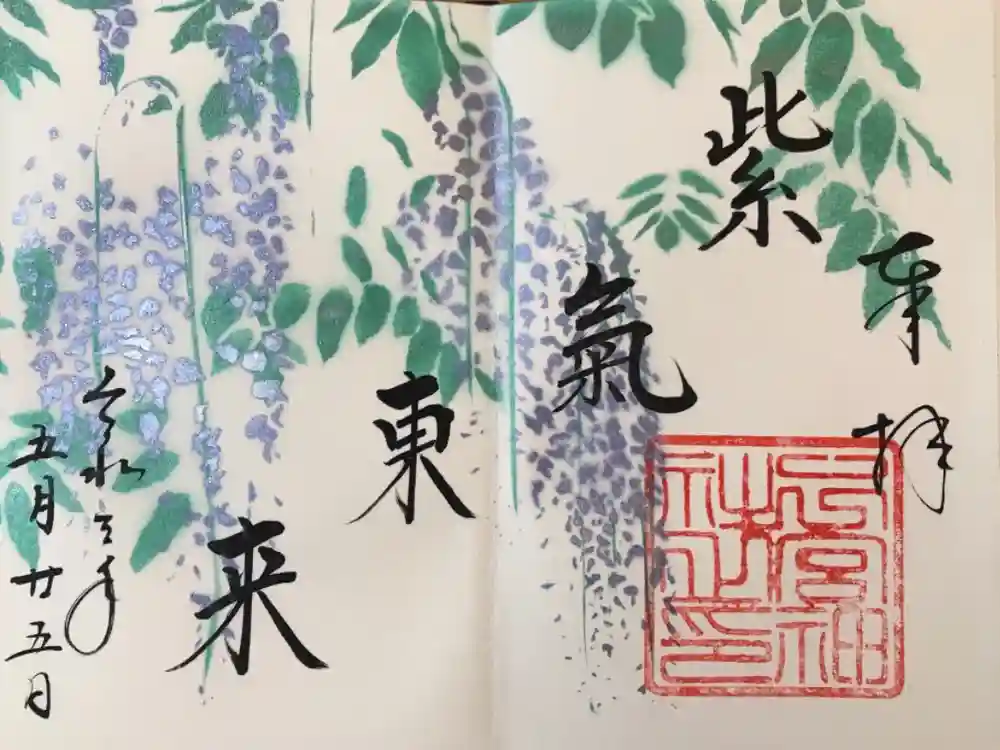 奉拝
紫氣東来
令和三年
五月廿五日
宮神
社之印